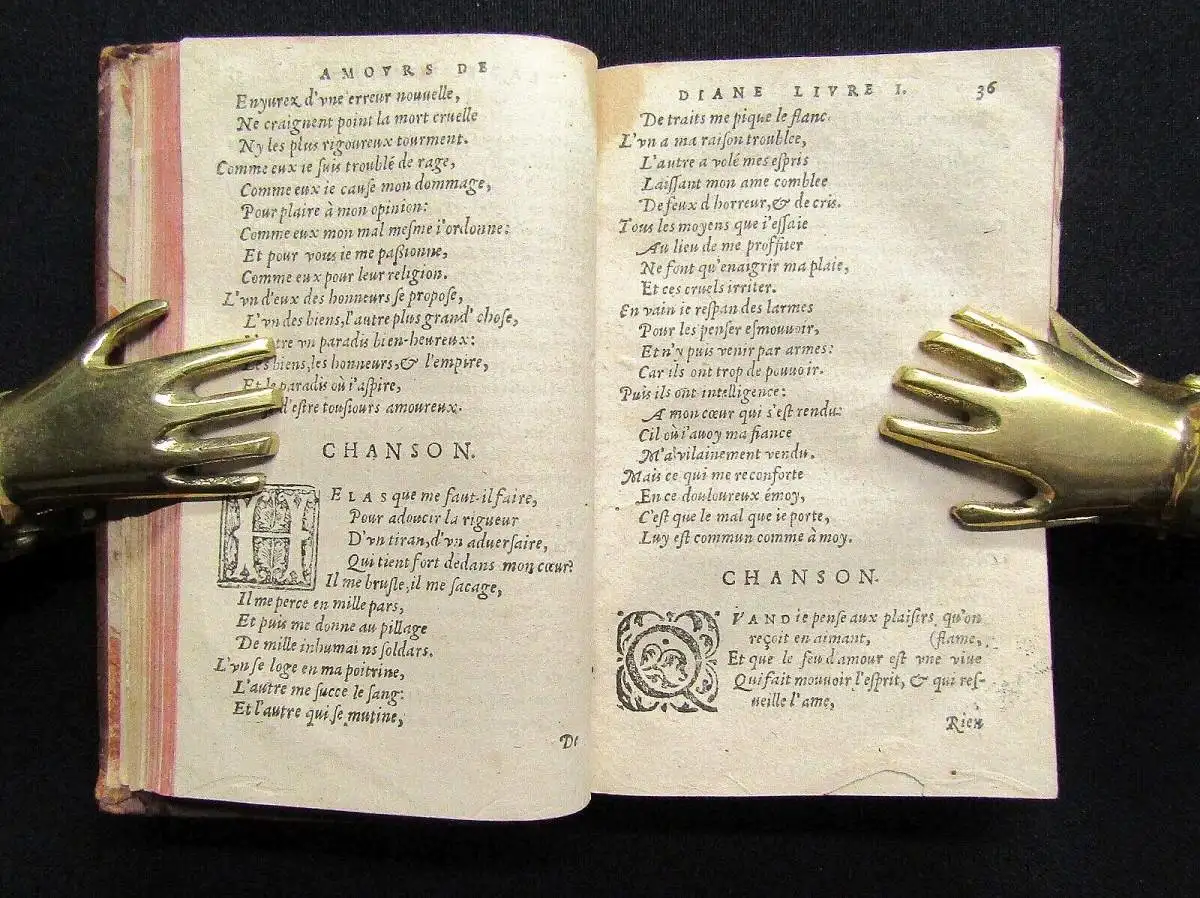 AMOVRS DE
Enyurez d'vne erreur nouuelle,
Ne craignent point la mort cruelle
Ny les plus rigoureux tourment.
Comme eux ie ſuis troublé de rage,
Comme eux ie cauſe mon dommage,
Pour plaire à mon opinion:
Comme eux mon mal meſme i'ordonne:
Et pour vous ie me paſsionne,
Comme eux pour leur religion.
L'vn d'eux des honneurs ſe propoſe,
L'vn des biens, l'autre plus grand' choſe,
vn paradis bien-heureux:
biens, les honneurs, & l'empire,
Et le paradis où i'aſpire,
d'eſtre touſiours amoureux.
CHANSON.
HELAS que me faut-il faire,
Pour adoucir la rigueur
D'vn tiran, d'vn aduerſaire,
Qui tient fort dedans mon cœur?
Il me bruſle, il me ſacage,
Il me perce en mille pars,
Et puis me donne au pillage
De mille inhumains ſoldars.
L'vn ſe loge en ma poitrine,
L'autre me ſucce le ſang:
Et l'autre qui ſe mutine,
De
DIANE LIVRE I. 36
De traits me pique le flanc.
L'vn a ma raiſon troublee,
L'autre a volé mes eſpris
Laiſſant mon ame comblee
De feux d horreur, & de cris.
Tous les moyens que i'eſſaie
Au lieu de me proffiter
Ne font qu'enaigrir ma plaie,
Et ces cruels irriter.
En vain ie reſpan des larmes
Pour les penſer eſmouuoir,
Et n'y puis venir par armes:
Car ils ont trop de pouuoir.
Puis ils ont intelligence:
A mon cœur qui s'eſt rendu:
Cil où i'auoy ma fiance
M'a vilainement vendu.
Mais ce qui me reconforte
En ce douloureux émoy,
C'eſt que le mal que ie porte,
Luy eſt commun comme à moy.
CHANSON.
QVAND ie penſe aux plaiſirs qu'on
reçoit en aimant, (flame,
Et que le feu d'amour eſt vne viue
Qui fait mouuoir l'eſprit, & qui reſ-
ueille l'ame,
Rien